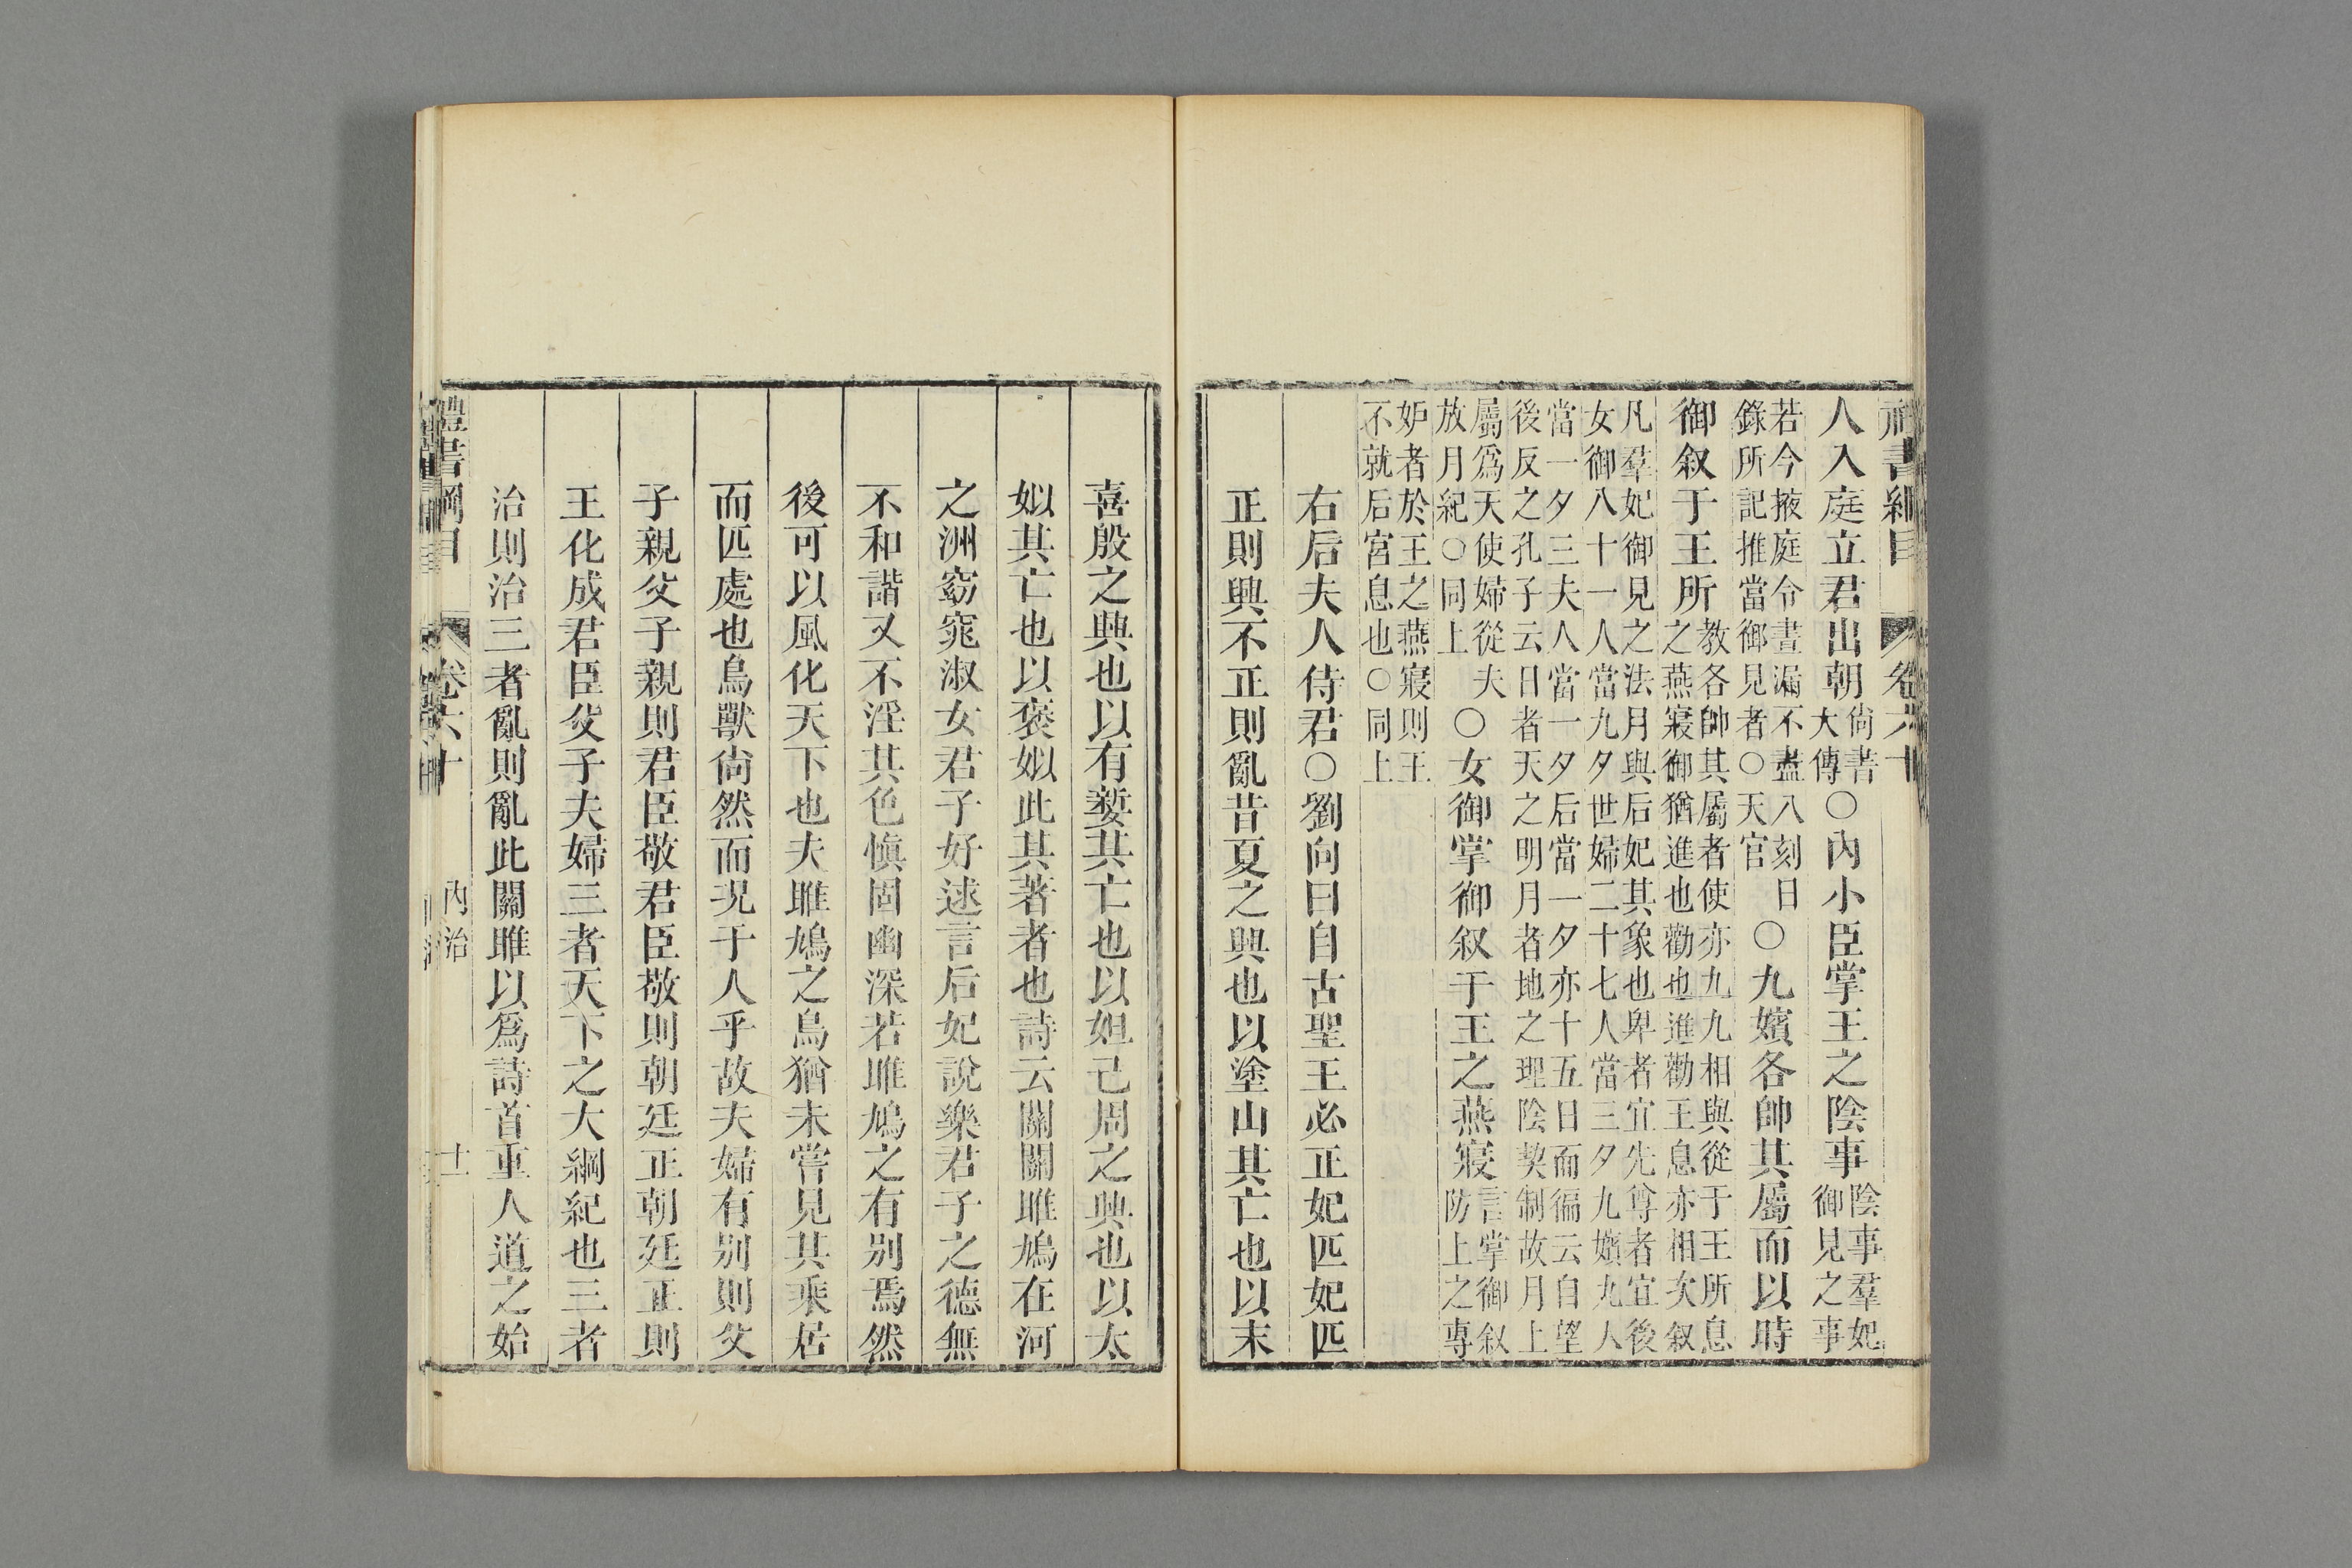 禮書綱目 卷六十
人入庭立君出朝尚書大傳○內小臣掌王之陰事陰事羣妃御見之事
若今掖庭令晝漏不盡八刻日錄所記推當御見者○天官○九嬪各帥其屬而以時
御叙于王所教各帥其屬者使亦九九相與從于王所息之燕寢御猶進也勸也進勸王息亦相次叙
凡羣妃御見之法月與后妃其象也卑者宜先尊者宜後女御八十一人當九夕世婦二十七人當三夕九嬪九人
當一夕三夫人當一夕后當一夕亦十五日而徧云自望後反之孔子云日者天之明月者地之理陰契制故月上
屬爲天使婦從夫放月紀○同上○女御掌御叙于王之燕寢言掌御叙防上之專
妒者於王之燕寢則王不就后宮息也○同上
右后夫人侍君○劉向曰自古聖王必正妃匹妃匹
正則興不正則亂昔夏之興也以塗山其亡也以末
喜殷之興也以有㜪其亡也以妲己周之興也以太
姒其亡也以褒姒此其著者也詩云關關雎鳩在河
之洲窈窕淑女君子好逑言后妃說樂君子之德無
不和諧又不淫其色愼固幽深若雎鳩之有别焉然
後可以風化天下也夫雎鳩之鳥猶未嘗見其乘居
而匹處也鳥獸尙然而况于人乎故夫婦有別則父
子親父子親則君臣敬君臣敬則朝廷正朝廷正則
王化成君臣父子夫婦三者天下之大綱紀也三者
治則治三者亂則亂此關雎以爲詩首重人道之始
禮書綱目 卷六十 內治 十一